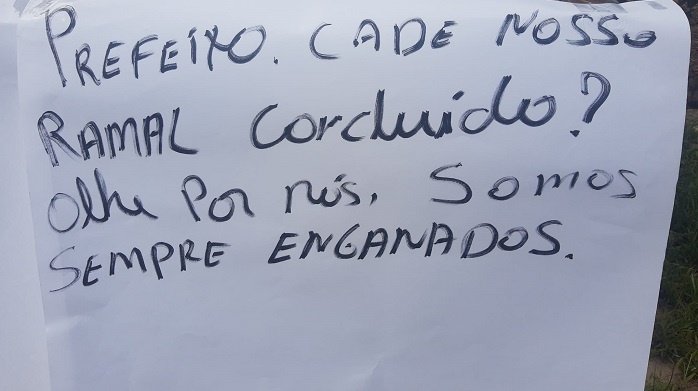 PREFEITO. CADE NOSSO
RAMAL CORCLUIDO?
Olhe POR NÓS. SOMOS
SEMPRE ENGANADOS.